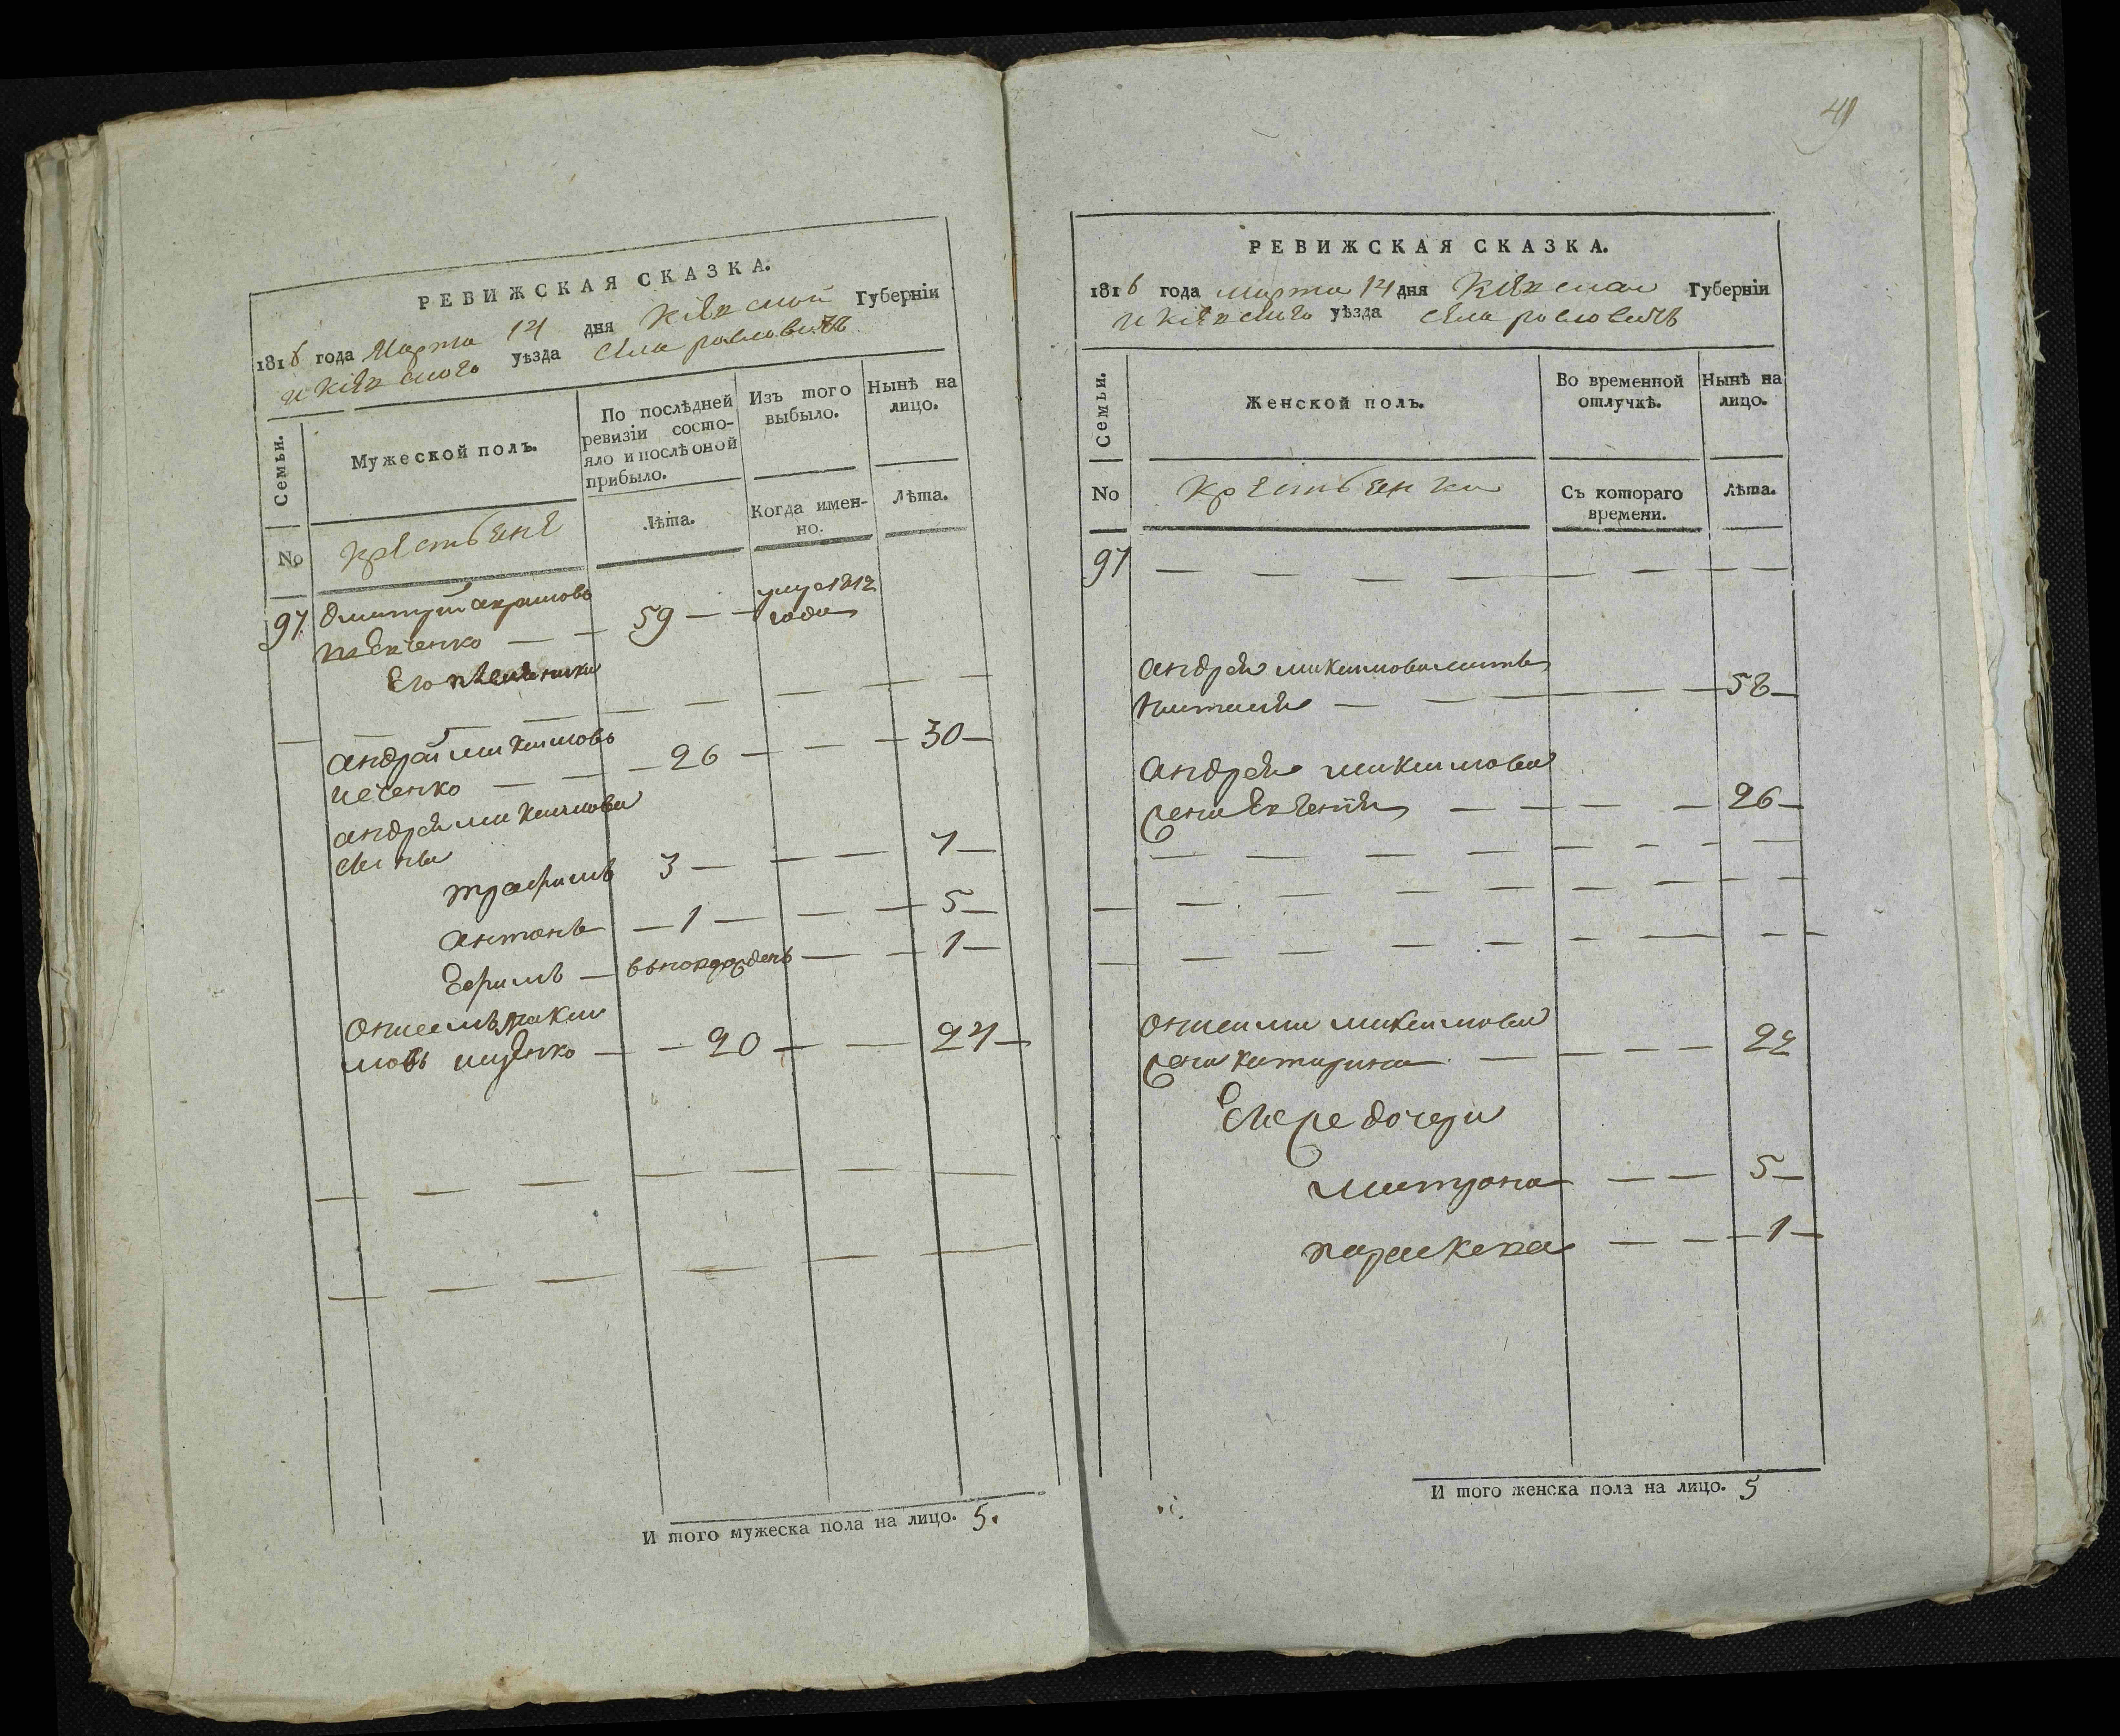 РЕВИЖСКАЯ СКАЗКА.
1816 года Марта 14 дня Кіевской Губерніи
и Кіевского уѣзда села
Семьи. Мужеской полъ. По послѣдней ревизіи состояло и послѣ оной прибыло. Изъ того выбыло. Нынѣ на лицо.
No крестьяне Лѣта. Когда именно. Лѣта.
97 дмитрий
59 — — 1812
года
Его племяники
андрей максимовъ
26 — — — 30 —
андрея максимова
сыны
трофимъ 3 — — — 7 —
антонъ — 1 — — — 5 —
Ефимъ — — — 1 —
онисимъ максимовъ
— — 20 — — 24 —
И того мужеска пола на лицо. 5.
41
РЕВИЖСКАЯ СКАЗКА.
1816 года марта 14 дня Кіевская Губерніи
и Кіевского уѣзда села
Семьи. Женской полъ. Во временной отлучкѣ. Нынѣ на лицо.
No крестьянки Съ котораго времени. Лѣта.
97 — — — — — — — —
андрея максимова мать
— — — — — 58 —
андрея максимова
жена — — — — 26 —
онисима максимова
жена катерина — — — — 22
дочери
матрона — — 5 —
параскева — — — 1 —
И того женска пола на лицо. 5